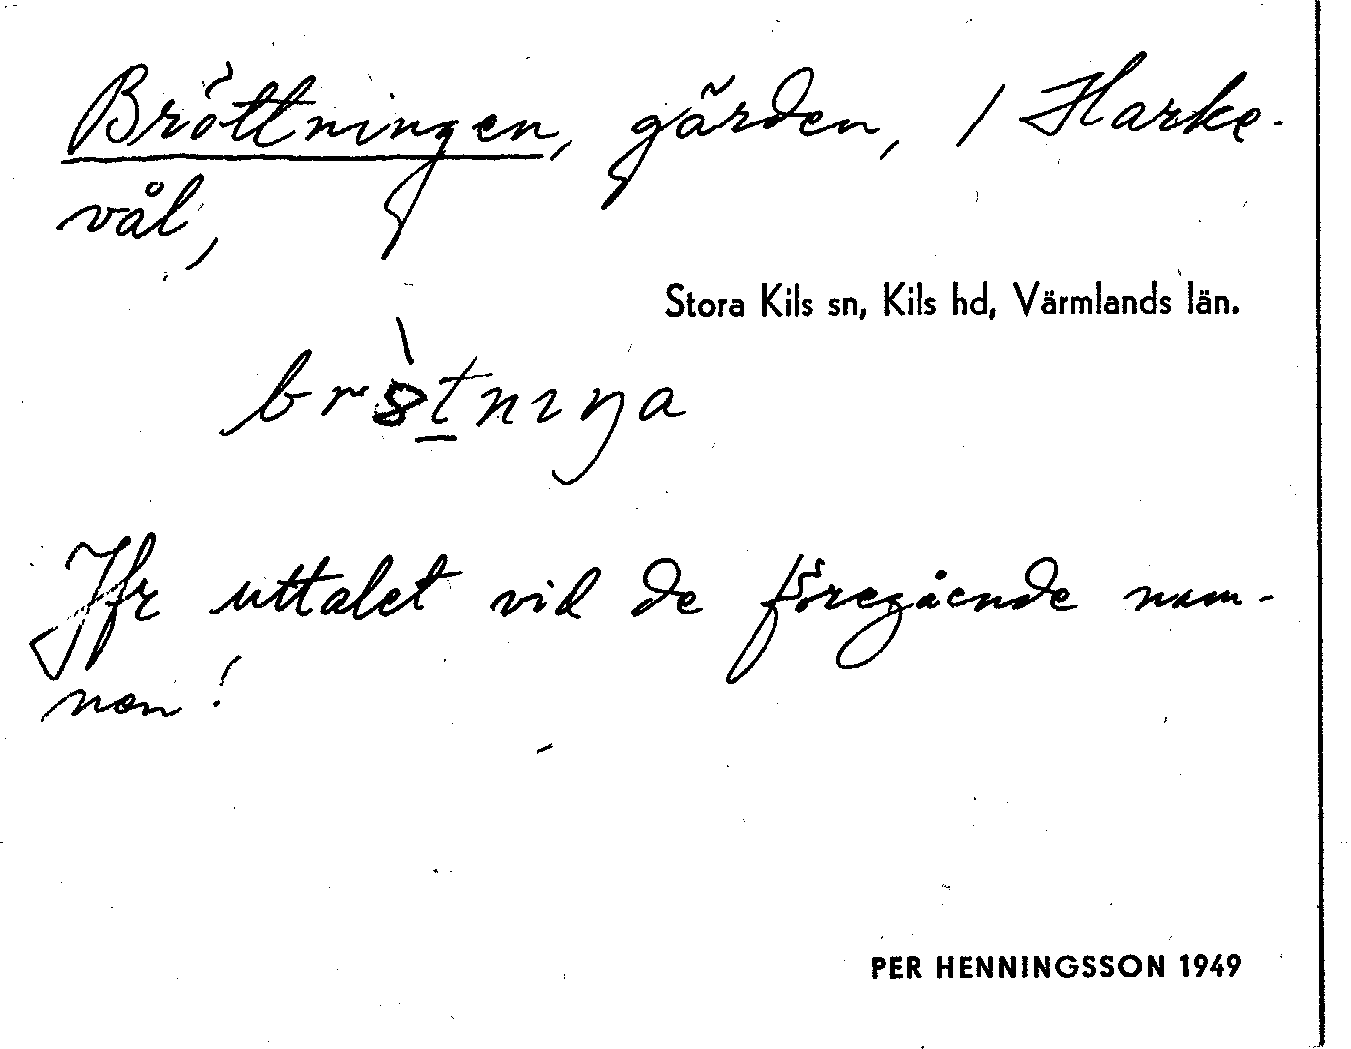 Bröttningen, gärden, / Harke-
vål,
Stora Kils sn, Kils hd, Värmlands län.
Jfr uttalet vid de föregående nam-
nen!
PER HENNINGSSON 1949